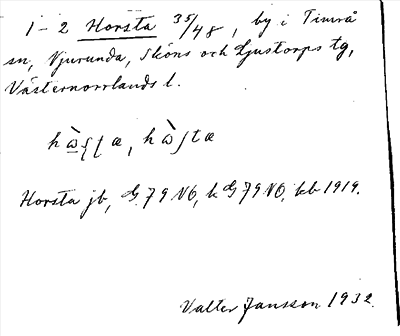 1-2 Horsta 35/48, by i Timrå
sn, Njurunda, Sköns och Ljustorps tg,
Västernorrlands l.
Horsta jb, G. 79 NO, k G 79 NO, kb 1919.
Valter Jansson 1932.